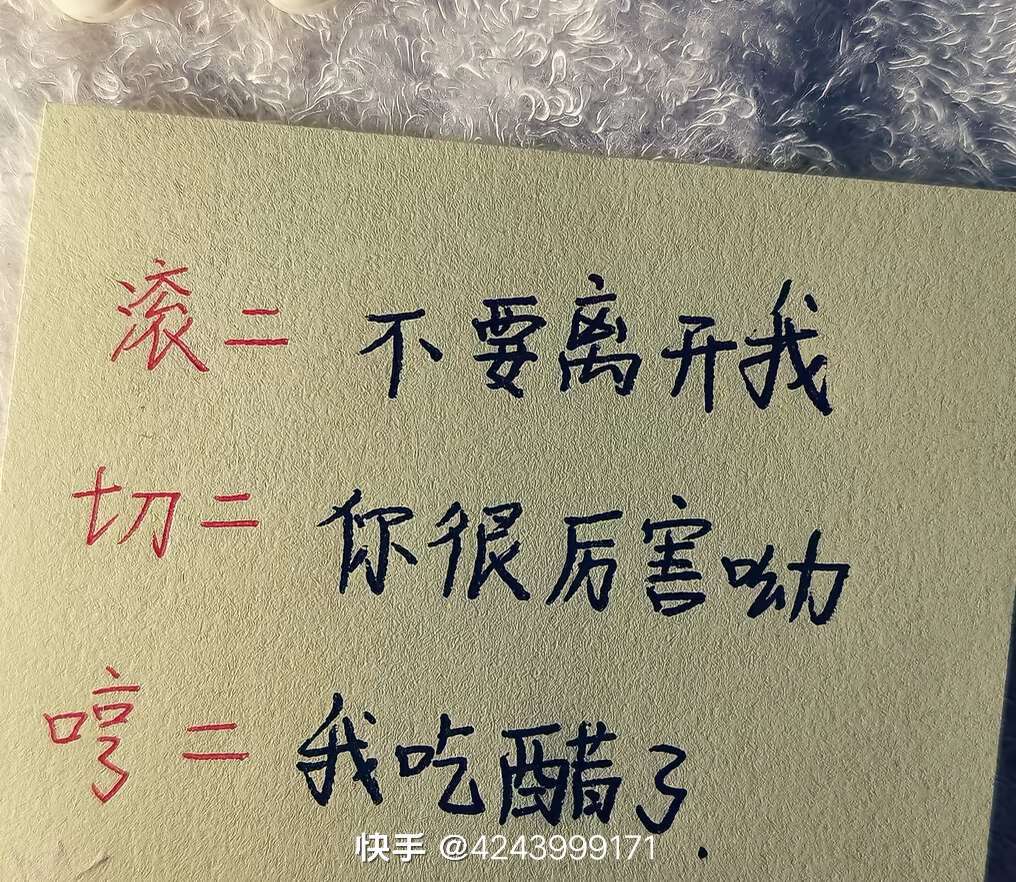 滚= 不要离开我
切= 你很厉害呦
哼= 我吃醋了.
快手 @4243999171